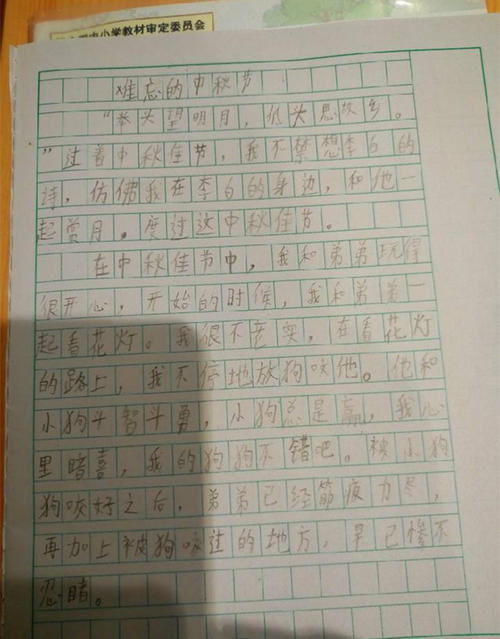 中小学教材审定委员会
难忘的中秋节
“举头望明月，低头思故乡。
”过着中秋佳节，我不禁想李白的
诗，仿佛我在李白的身边，和他一
起赏月。度过这中秋佳节。
在中秋佳节中，我和弟弟玩得
很开心，开始的时候，我和弟弟一
起看花灯。我很不老实，在看花灯
的路上，我不停地放狗咬他。他和
小狗斗智斗勇，小狗总是赢，我心
里暗喜，我的狗狗不错吧。被小狗
狗咬好之后，弟弟已经筋疲力尽，
再加上被狗咬过的地方，早已惨不
忍睹。